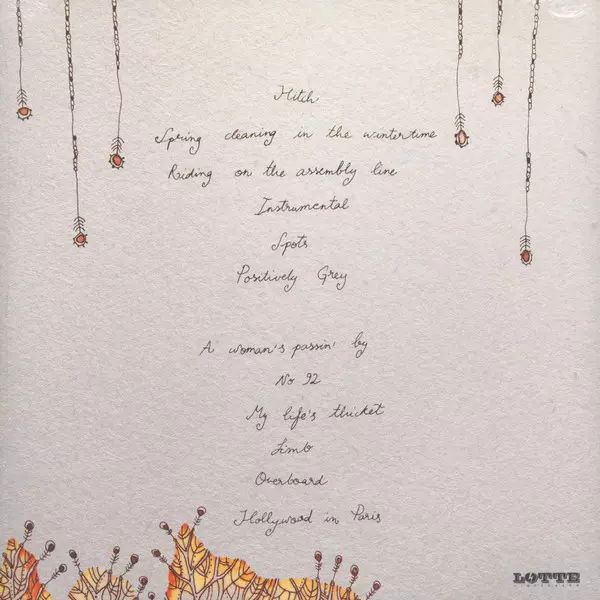 Hitch
Spring cleaning in the wintertime
Riding on the assembly line
Instrumental
Spots
Positively Grey
A woman's passin' by
No 92
My life's thicket
Limb
Overboard
Hollywood in Paris
LOTTE